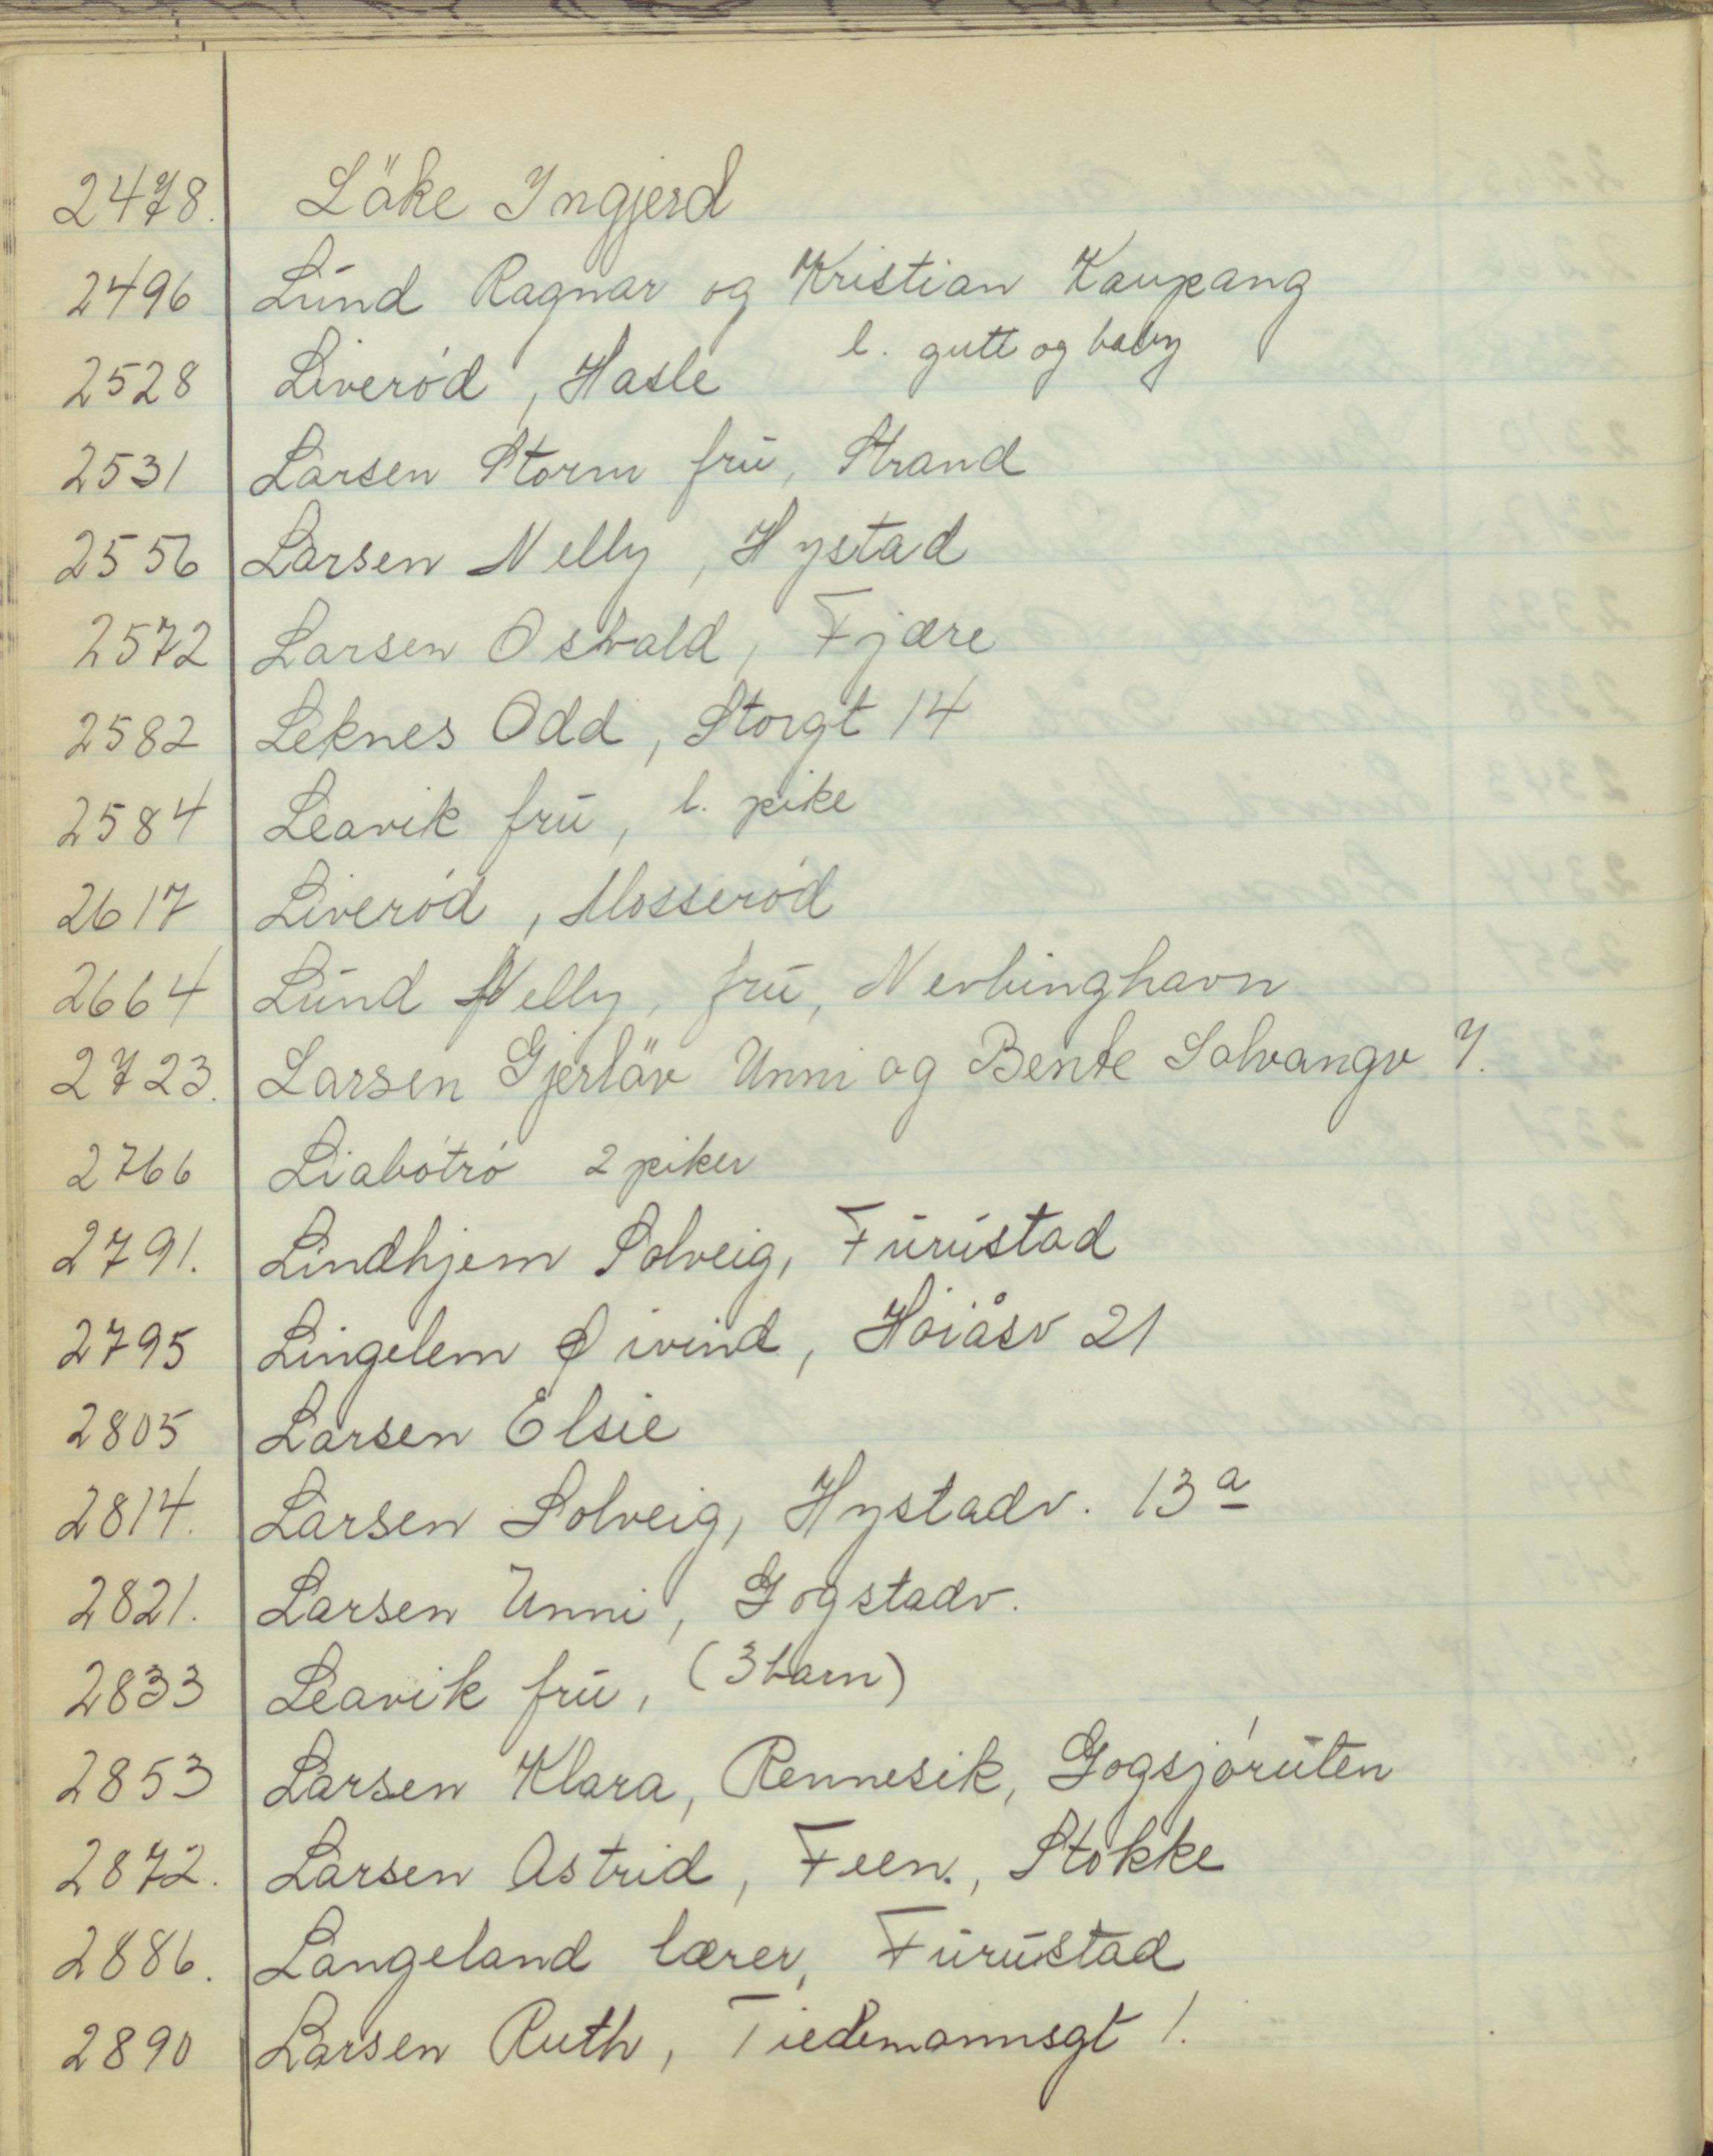 2478. Löke Ingjerd
2496 Lund Ragnar og Kristian Kaupang
l. gutt og baby
2528 Liveród, Hasle
2531 Larsen Storm fru, Strand
2556 Larsen Nelly, Hystad
2572 Larsen Osvald, Fjære
2582 Leknes Odd, Storgt 14
2584 Leavik fru, l. pike
2617 Liveród, Mosseród
2664 Lund Nelly, fru, Nerbinghavn
2723. Larsen Gjerlöv Unni og Bente Solvangv 7.
2766 Liabótró 2 piker
2791. Lindhjem Solveig, Furustad
2795 Lingelem Øivind, Hóiåsv 21
2805 Larsen Elsie
2814. Larsen Solveig, Hystadv. 13a
2821. Larsen Unni, Gogstadv.
2833 Leavik fru, (3 barn)
2853 Larsen Klara, Rennesik, Gogsjóruten
2872. Larsen Astrid, Feen., Stokke
2886. Langeland lærer, Furustad
2890 Larsen Ruth, Tiedemannsgt 1.